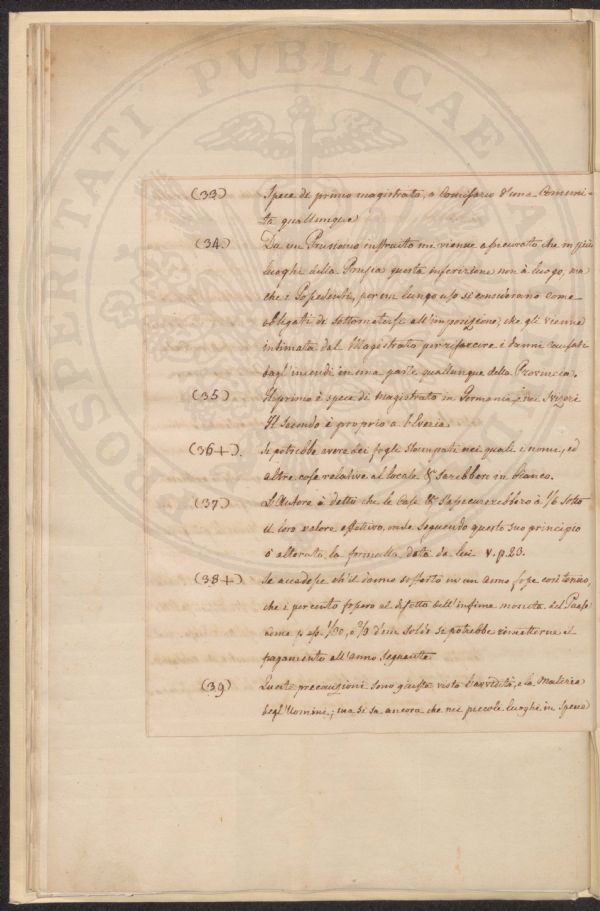 PROSPERITATI PVBLICAE
(33) Spece di primo magistrato, o Comissario d'una Comuni=
tà quallunque
(34) Da un Prussiano instruito mi vienne assicurato che in più
luoghi della Prussia questa inscrizione non à luogo, ma
che i Possedenti, per un lungo uso si considerano come
obbligati di sottometersi all'imposizione, che gli vienne
intimata dal Magistrato per risarcire i danni causati
dagl'incendi in una parte quallunque della Provincia.
(35) Il primo è spece di Magistrato in Germania, e nei Svizeri
Il Secondo è proprio a l'Elvezia.
(36+). Si potrebbe avere dei fogli stampati nei quali i nomi, ed
altre cose relative al locale &c sarebbero in bianco.
(37) L'Autore à detto che le Case &c s'assecurerebbero à 1/6 sotto
il loro valore effettivo, onde seguendo questo suo principio
ò alterata la formulla data da lui v. p. 23.
(38+) Se accadesse ch'il danno sofferto in un anno fosse così tenue,
che i per cento fossero al disotto dell'infima moneta del Paese
come p. esp. 1/30, o d'un soldo si potrebbe rimetterne il
pagamento all'anno seguente
(39) Queste precauzioni sono giuste vista l'avvidità, e la malizia
degl'Uomini; ma si sa ancora che nei piccoli luoghi in specie